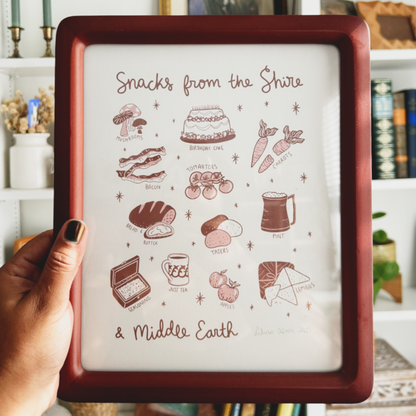 Snacks from the Shire
MUSHROOMS
BIRTHDAY CAKE
CARROTS
BACON
TOMATOES
BREAD &
BUTTER
TATERS
PINT
SEASONING
JUST TEA
APPLES
LEMBAS
& Middle Earth